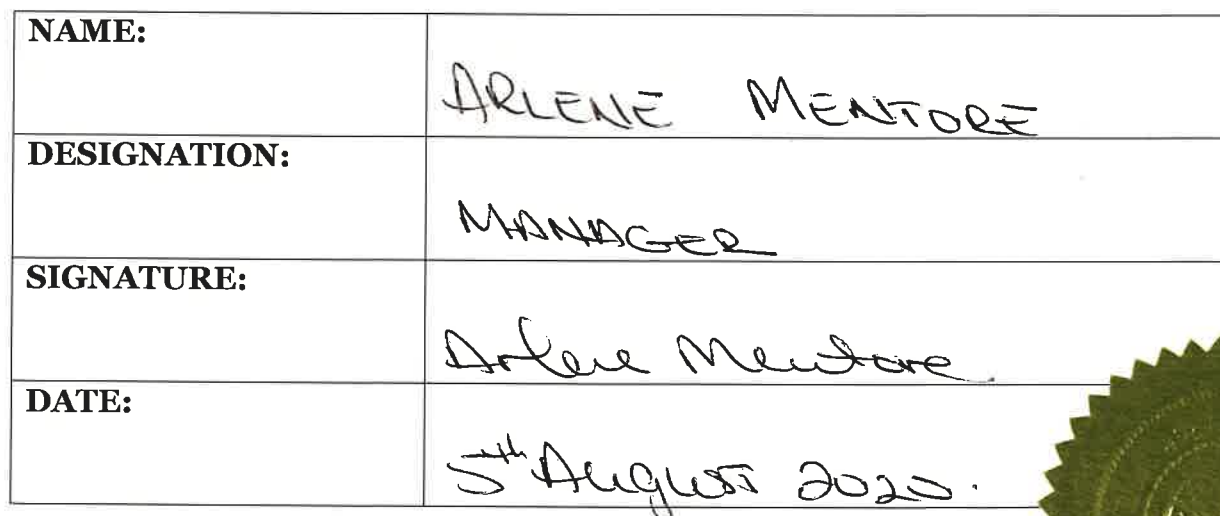 NAME: ARLENE MENTORE
DESIGNATION: MANAGER
SIGNATURE: Arlene Mentore
DATE: 5th August 2020.